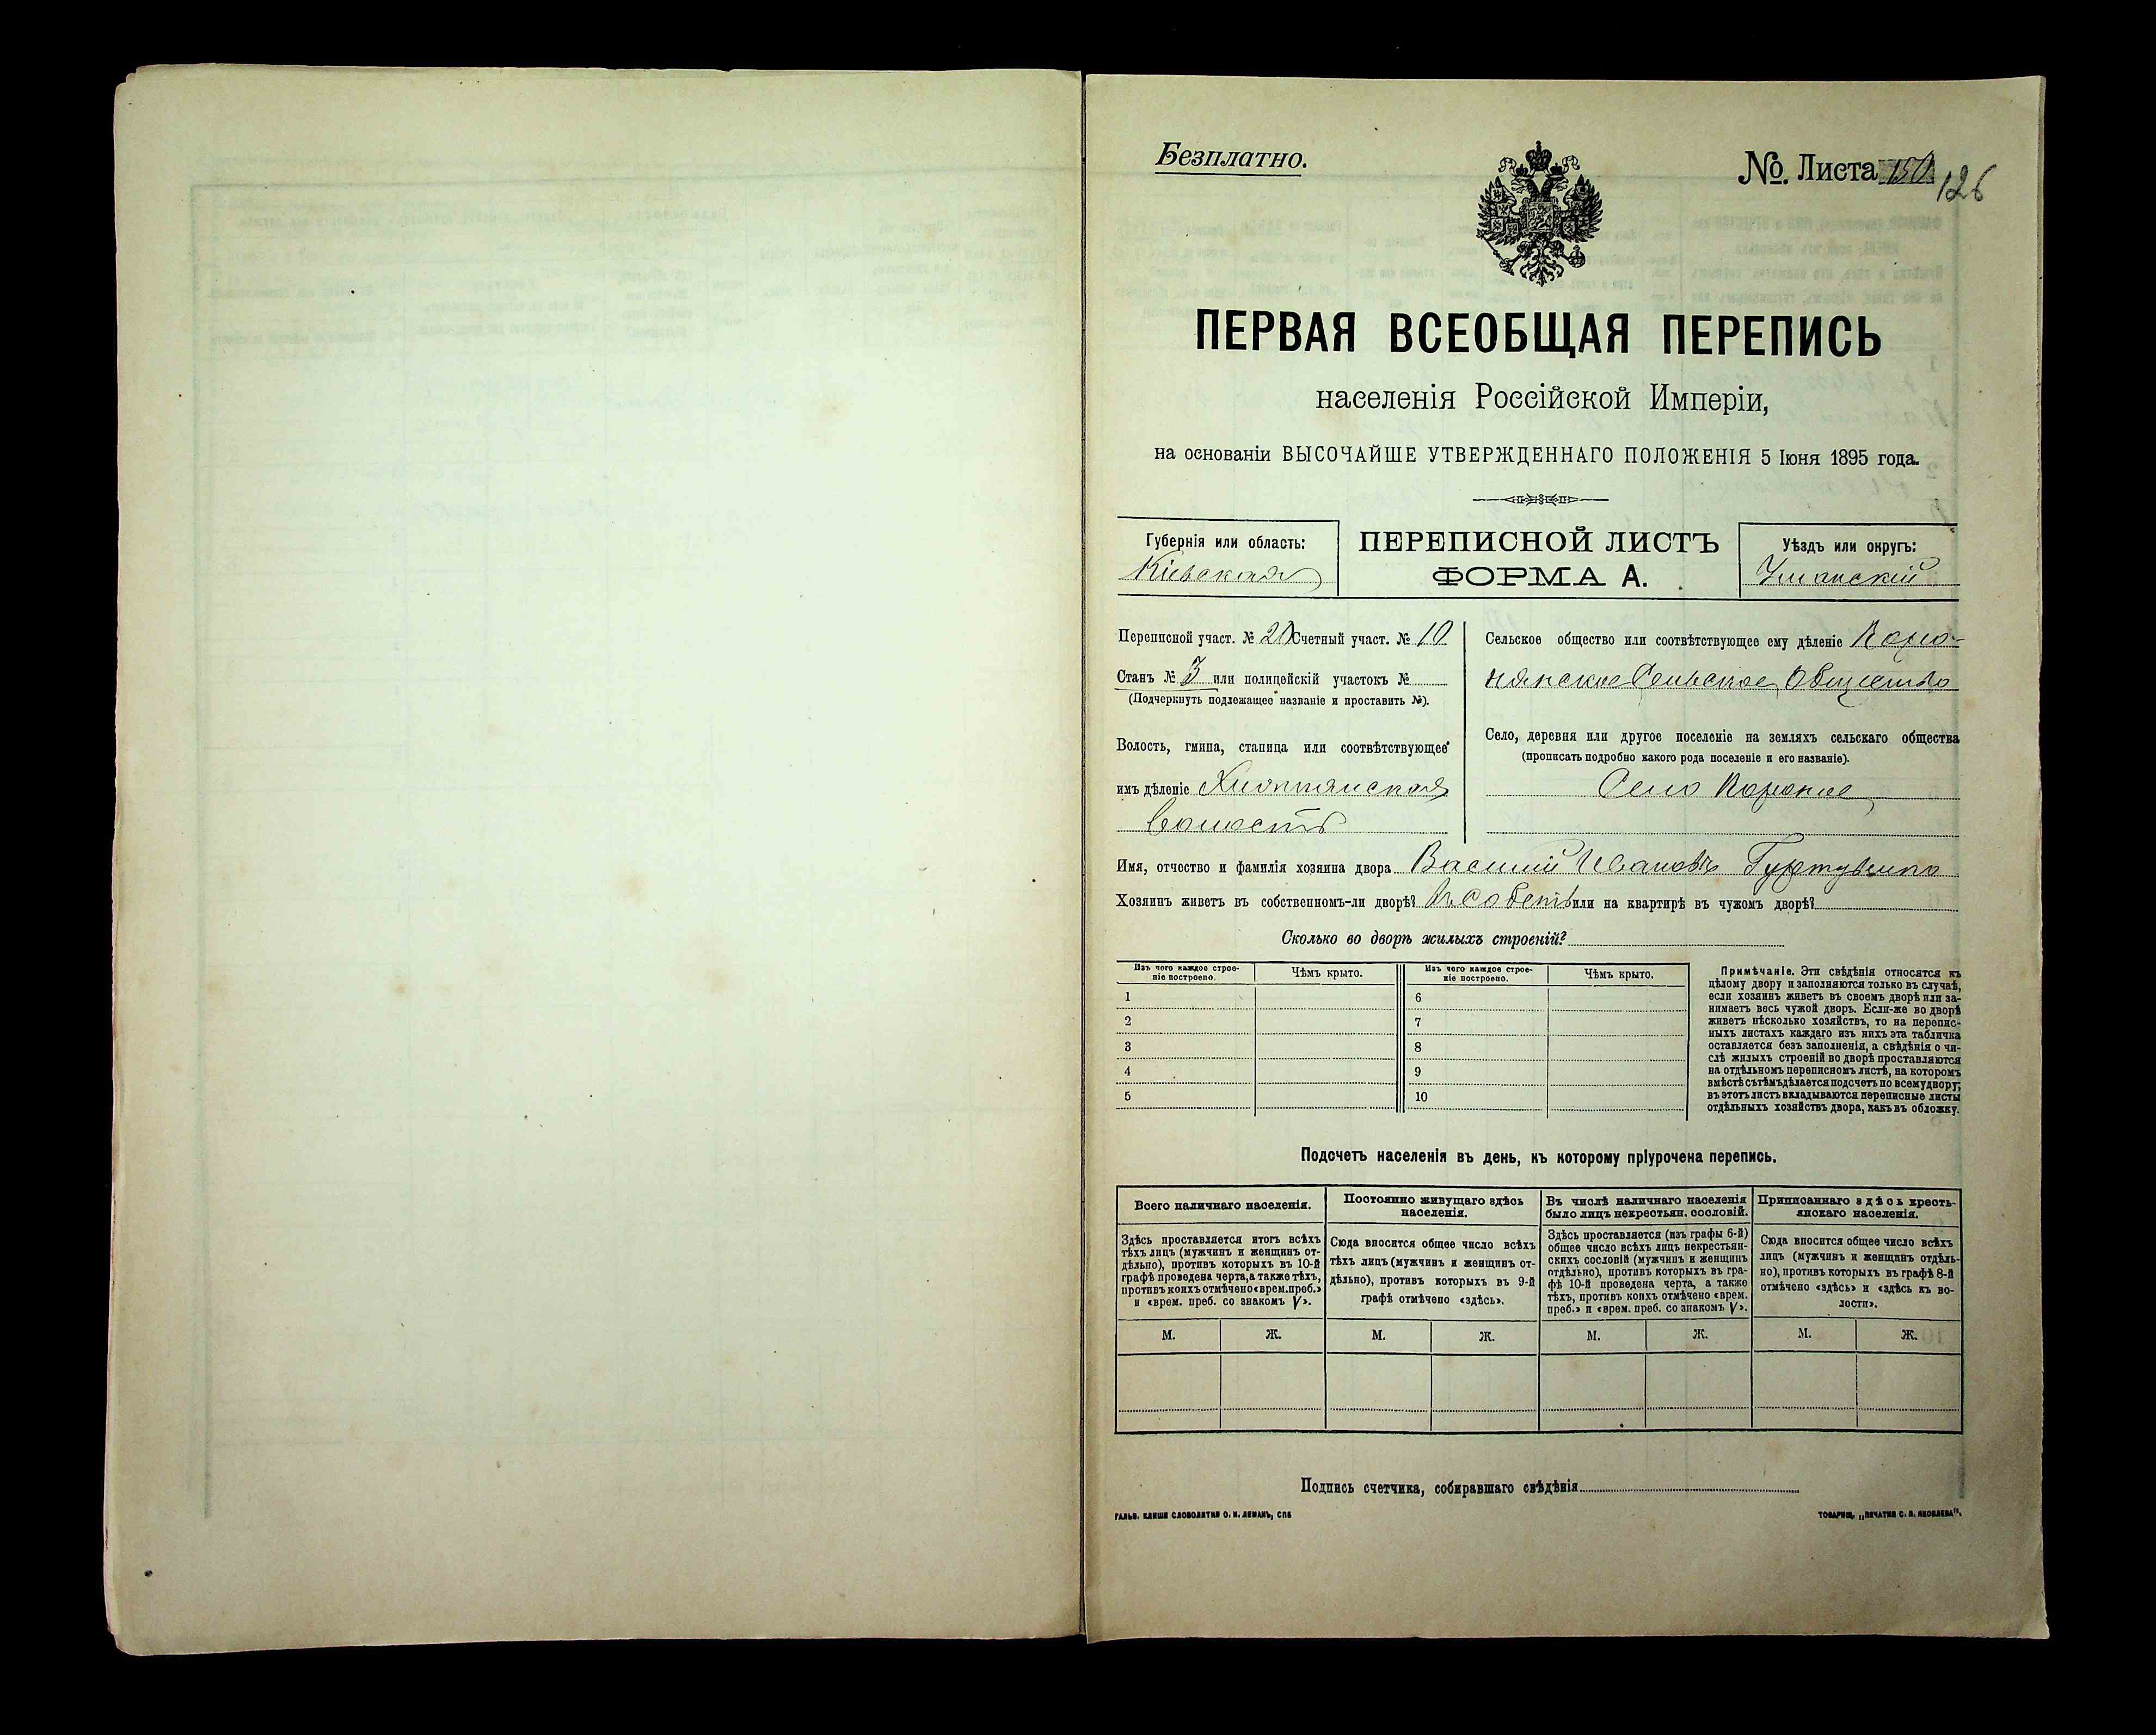 Безплатно.
№ Листа 150 126
ПЕРВАЯ ВСЕОБЩАЯ ПЕРЕПИСЬ
населенія Россійской Имперіи,
на основаніи ВЫСОЧАЙШЕ УТВЕРЖДЕННАГО ПОЛОЖЕНІЯ 5 Іюня 1895 года.
Губернія или область:
Кіевская
ПЕРЕПИСНОЙ ЛИСТЪ
ФОРМА А.
Уѣздъ или округъ:
Уманскій
Переписной участ. № 20 Счетный участ. № 10
Станъ № 3 или полицейскій участокъ №
(Подчеркнуть подлежащее названіе и проставить №).
Волость, гмина, станица или соотвѣтствующее
имъ дѣленіе
волость
Сельское общество или соотвѣтствующее ему дѣленіе
Сельское Общество
Село, деревня или другое поселеніе на земляхъ сельскаго общества
(прописать подробно какого рода поселеніе и его названіе).
Село
Имя, отчество и фамилія хозяина двора Василій Ивановъ
Хозяинъ живетъ въ собственномъ-ли дворѣ? или на квартирѣ въ чужомъ дворѣ?
Сколько во дворѣ жилыхъ строеній?
Изъ чего каждое строе-
ніе построено.
Чѣмъ крыто.
Изъ чего каждое строе-
ніе построено.
Чѣмъ крыто.
1 6
2 7
3 8
4 9
5 10
Примѣчаніе. Эти свѣдѣнія относятся къ
цѣлому двору и заполняются только въ случаѣ,
если хозяинъ живетъ въ своемъ дворѣ или за-
нимаетъ весь чужой дворъ. Если-же во дворѣ
живетъ нѣсколько хозяйствъ, то на перепис-
ныхъ листахъ каждаго изъ нихъ эта табличка
оставляется безъ заполненія, а свѣдѣнія о чи-
слѣ жилыхъ строеній во дворѣ проставляются
на отдѣльномъ переписномъ листѣ, на которомъ
вмѣстѣ съ тѣмъ дѣлается подсчетъ по всему двору;
въ этотъ листъ вкладываются переписные листы
отдѣльныхъ хозяйствъ двора, какъ въ обложку.
Подсчетъ населенія въ день, къ которому пріурочена перепись.
Всего наличнаго населенія.
Здѣсь проставляется итогъ всѣхъ
тѣхъ лицъ (мужчинъ и женщинъ от-
дѣльно), противъ которыхъ въ 10-й
графѣ проведена черта, а также тѣхъ,
противъ коихъ отмѣчено «врем. преб.»
и «врем. преб. со знакомъ V».
Постоянно живущаго здѣсь
населенія.
Сюда вносится общее число всѣхъ
тѣхъ лицъ (мужчинъ и женщинъ от-
дѣльно), противъ которыхъ въ 9-й
графѣ отмѣчено «здѣсь».
Въ числѣ наличнаго населенія
было лицъ некрестьян. сословій.
Здѣсь проставляется (изъ графы 6-й)
общее число всѣхъ лицъ некрестьян-
скихъ сословій (мужчинъ и женщинъ
отдѣльно), противъ которыхъ въ гра-
фѣ 10-й проведена черта, а также
тѣхъ, противъ коихъ отмѣчено «врем.
преб.» и «врем. преб. со знакомъ V».
Приписаннаго здѣсь кресть-
янскаго населенія.
Сюда вносится общее число всѣхъ
лицъ (мужчинъ и женщинъ отдѣль-
но), противъ которыхъ въ графѣ 8-й
отмѣчено «здѣсь» и «здѣсь къ во-
лости».
М. Ж. М. Ж. М. Ж. М. Ж.
Подпись счетчика, собиравшаго свѣдѣнія
ГАЛЬВ. КЛИШЕ СЛОВОЛИТНИ О. И. ЛЕМАНЪ, СПБ
ТОВАРИЩ. „ПЕЧАТНЯ С. П. ЯКОВЛЕВА".